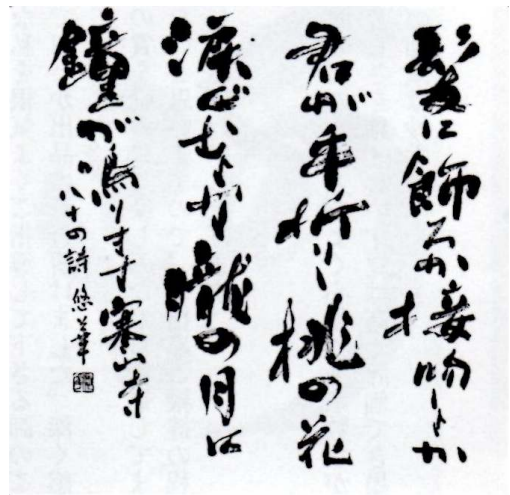 髪に飾ろか接吻しよか
君が手折りし桃の花
涙ぐむよな朧の月に
鐘が鳴ります寒山寺
八十の詩 悠